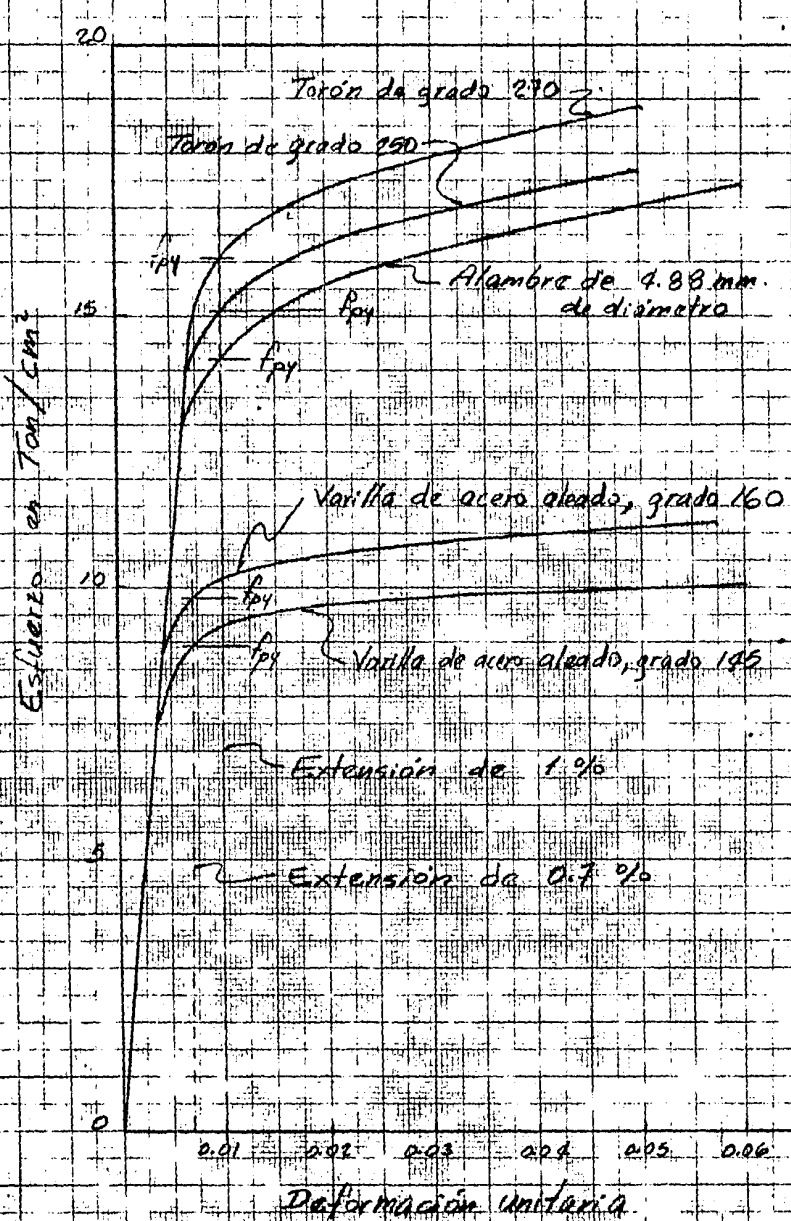 20
Torón de grado 270
Torón de grado 250
fpy
Alambre de 4.88 mm.
de diámetro
15
fpy
fpy
Esfuerzo en Ton/cm²
Varilla de acero aleado, grado 160
10
fpy
fpy
Varilla de acero aleado, grado 145
Extensión de 1 %
5
Extensión de 0.7 %
0
0.01 0.02 0.03 0.04 0.05 0.06
Deformación unitaria